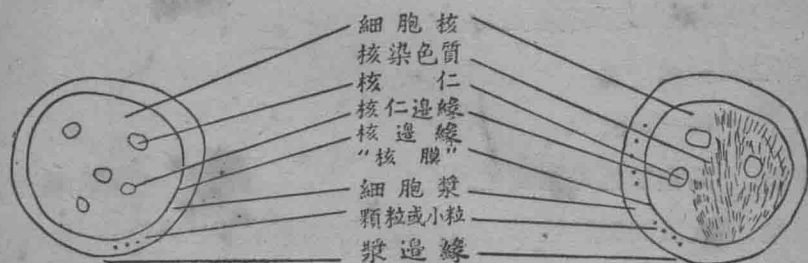 細胞核
核染色質
核仁
核仁邊緣
核邊緣
"核膜"
細胞漿
顆粒或小粒
漿邊緣